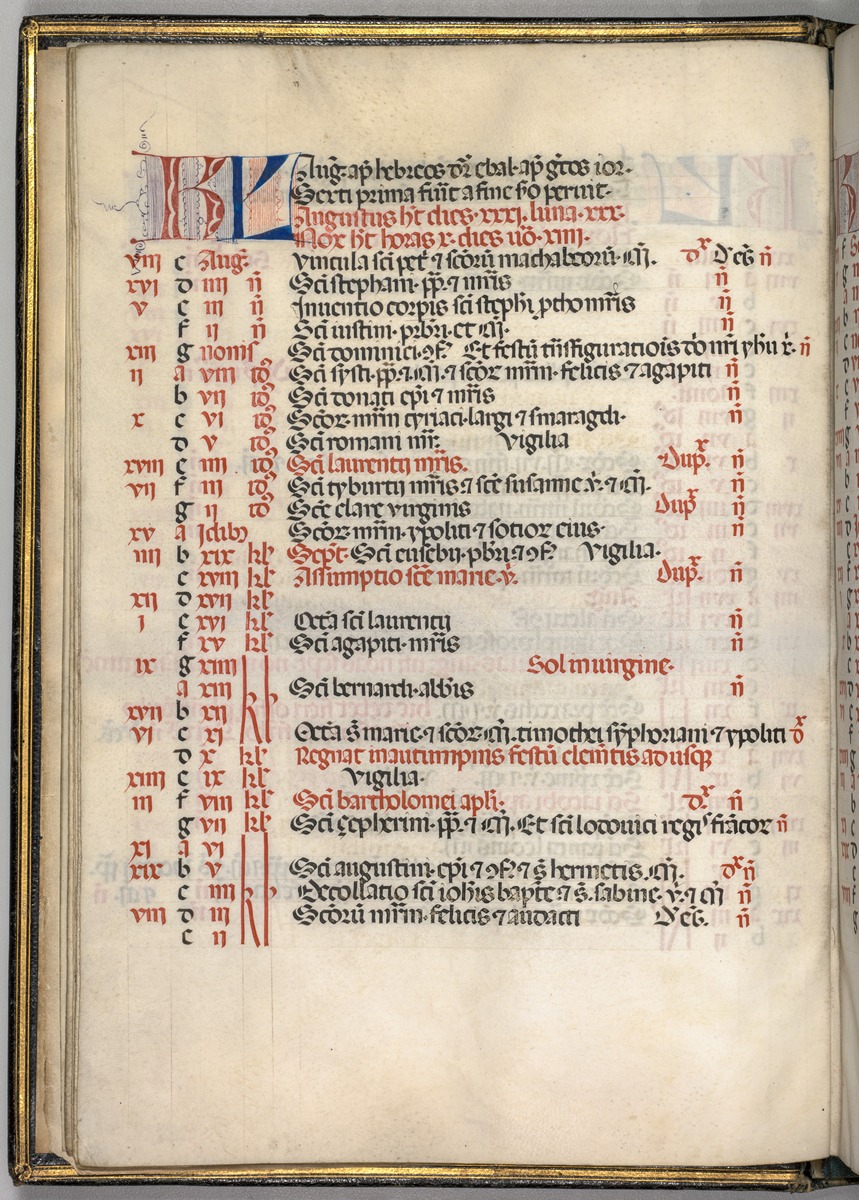 KL Aug̃· ap̃ hebreos dr̃ ebal· ap̃ gr̃cos ior·
Sexti prima fiũt a fine sc̃do perimit·
Augustus hr̃t dies· xxxi· luna· xxx·
Nox hr̃t horas x· dies uõ· xiiii·
viii c Aug̃. Vincula sc̃i pet̃ ⁊ sc̃orũ machabeorũ· m̃· dx̃ d' eg̃ ñ
xvi d iiii ñ Sc̃i stephani· pp̃· ⁊ mr̃is ñ
v e iii ñ Inuentio corpis sc̃i steph̃i ptho mr̃is ñ
f ii ñ Sc̃i iustini· prb̃ri· et m̃· ñ
xiii g nonis Sc̃i dominici· ɔf· Et festũ trñsfiguratiõis dñi nr̃i yh̃u x̃· ñ
ii a viii id' Sc̃i systi· pp̃· ⁊ m̃· ⁊ sc̃or· mr̃m· felicis ⁊ agapiti ñ
b vii id' Sc̃i donati ep̃i ⁊ mr̃is ñ
x c vi id' Sc̃or· mr̃m cyriaci· largi ⁊ smaragdi· ñ
d v id' Sc̃i romani mr̃· Vigilia
xviii e iiii id' Sc̃i laurentii mr̃is. dupx̃· ñ
vii f iii id' Sc̃i tyburtii mr̃is ⁊ sc̃e susanne v̇· ⁊ m̃· ñ
g ii id' Sc̃e clare virginis dup̃ ñ
xv a idib; Sc̃or· mr̃m· ypoliti ⁊ sotior eius· ñ
iiii b xix kl' Sept̃· Sc̃i eusebii· pb̃ri ⁊ ɔf· Vigilia·
c xviii kl' Assumptio sc̃e marie· v̇· dup̃x· ñ
xii d xvii kl'
i e xvi kl' Octã sc̃i laurentii ñ
f xv kl' Sc̃i agapiti· mr̃is ñ
ix g xiiii kl' Sol in uirgine·
a xiii Sc̃i bernardi· abb̃is ñ
xvii b xii
vi c xi Octã s̃· marie· ⁊ sc̃or· m̃· timothei sỹphoriani ⁊ ypoliti dx̃
d x kl' Regnat in autumpnis festũ clem̃tis ad usq̃
xiiii e ix kl' Vigilia·
iii f viii kl' Sc̃i bartholomei apl̃i· dx̃· ñ
g vii kl' Sc̃i çepherini· pp̃· ⁊ m̃· Et sc̃i lodouici regis frãcor ñ
xi a vi
xix b v Sc̃i augustini· ep̃i ⁊ ɔf· ⁊ s̃· hermetis· m̃· dx̃ ñ
c iiii Decollatio sc̃i ioh̃is bapt̃e ⁊ s̃· sabine· v̇· ⁊ m̃ ñ
viii d iii Sc̃orũ mr̃m· felicis ⁊ audacti d' eg̃. ñ
e ii